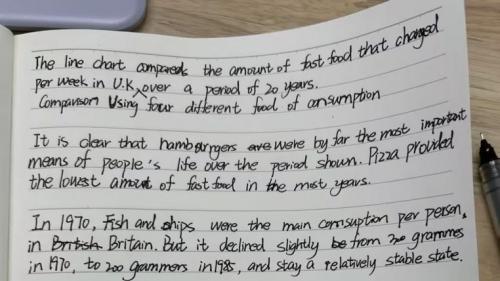 The line chart compareds the amount of fast food that changed
per week in U.K over a period of 20 years.
Comparison Using four different food of consumption
It is clear that hamburgers were by far the most important
means of people's life over the period shown. Pizza provided
the lowest amount of fast food in the most years.
In 1970, Fish and chips were the main comsuption per person,
in Britain. But it declined slightly from grammes
in 1970, to 200 grammers in 1985, and stay a relatively stable state.